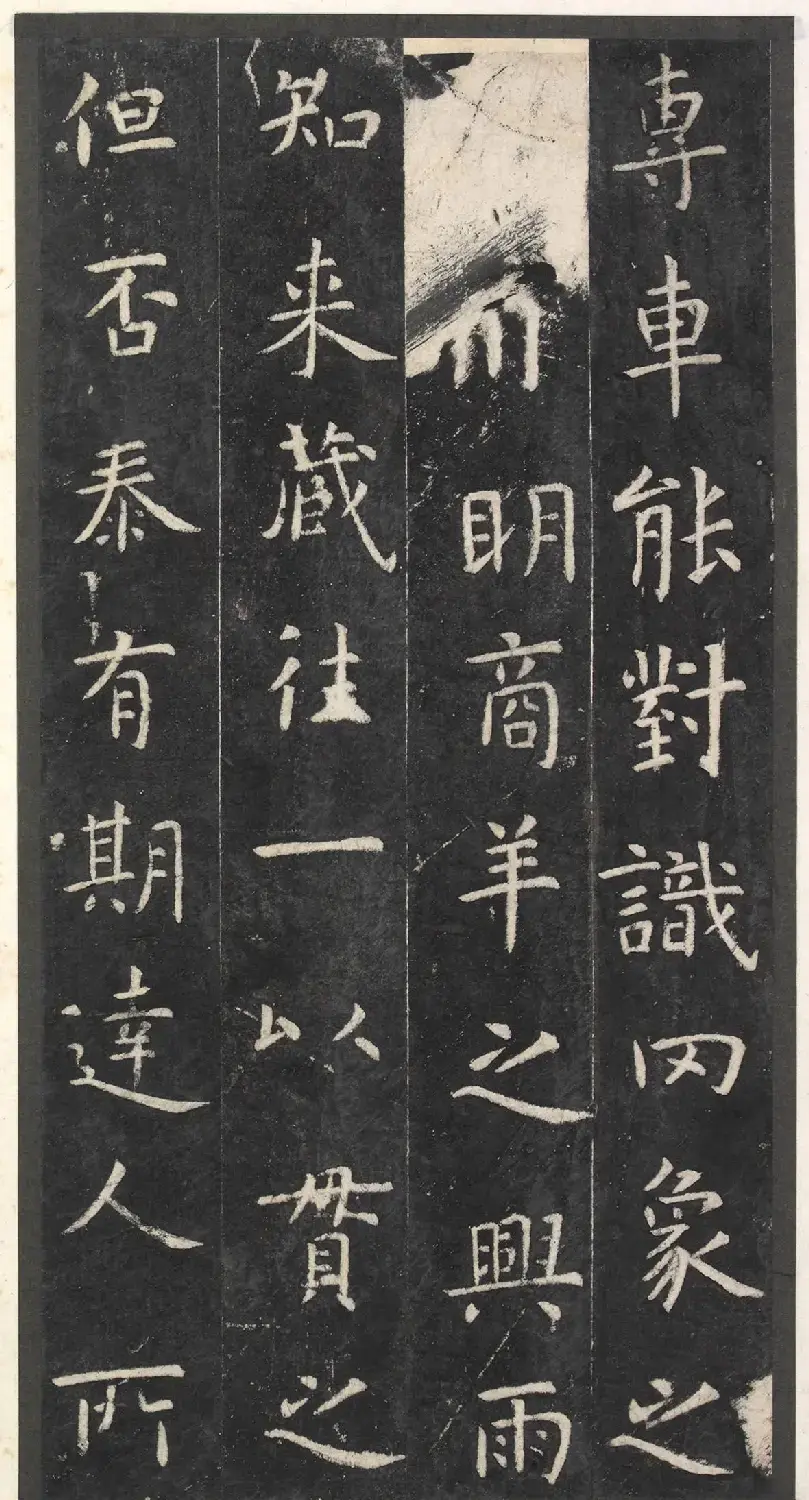 專車能對識罔象之
川眀商羊之興雨
知来藏往一以貫之
但否泰有期達人所